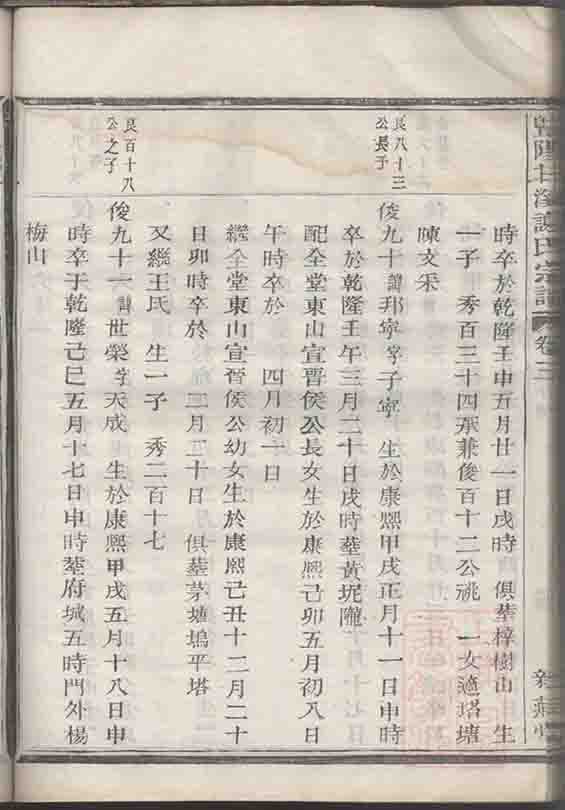 谿謝氏宗譜 卷三
時卒於乾隆壬申五月廿一日戌時 俱塟梓樹山 生
一子 秀百三十四承兼俊百十二公祧 一女適塔塘
陳文采
良八十三公長子
俊九十諱邦寧字子寧 生於康熙甲戌正月十一日申時
卒於乾隆壬午三月二十日戌時塟黃坭隴
配全堂東山宣晋侯公長女生於康熙己卯五月初入日
午時卒於 四月初一日
繼全堂東山宣晋侯公幼女生於康熙己丑十二月二十
日卯時卒於 二月二十日 俱塟茅塘塢平塔
又繼王氏 生一子 秀二百十七
良百十八公之子
俊九十一諱世榮字天成 生於康熙甲戌五月十八日申
時卒于乾隆己巳五月十七日申時塟府城五時門外楊
梅山